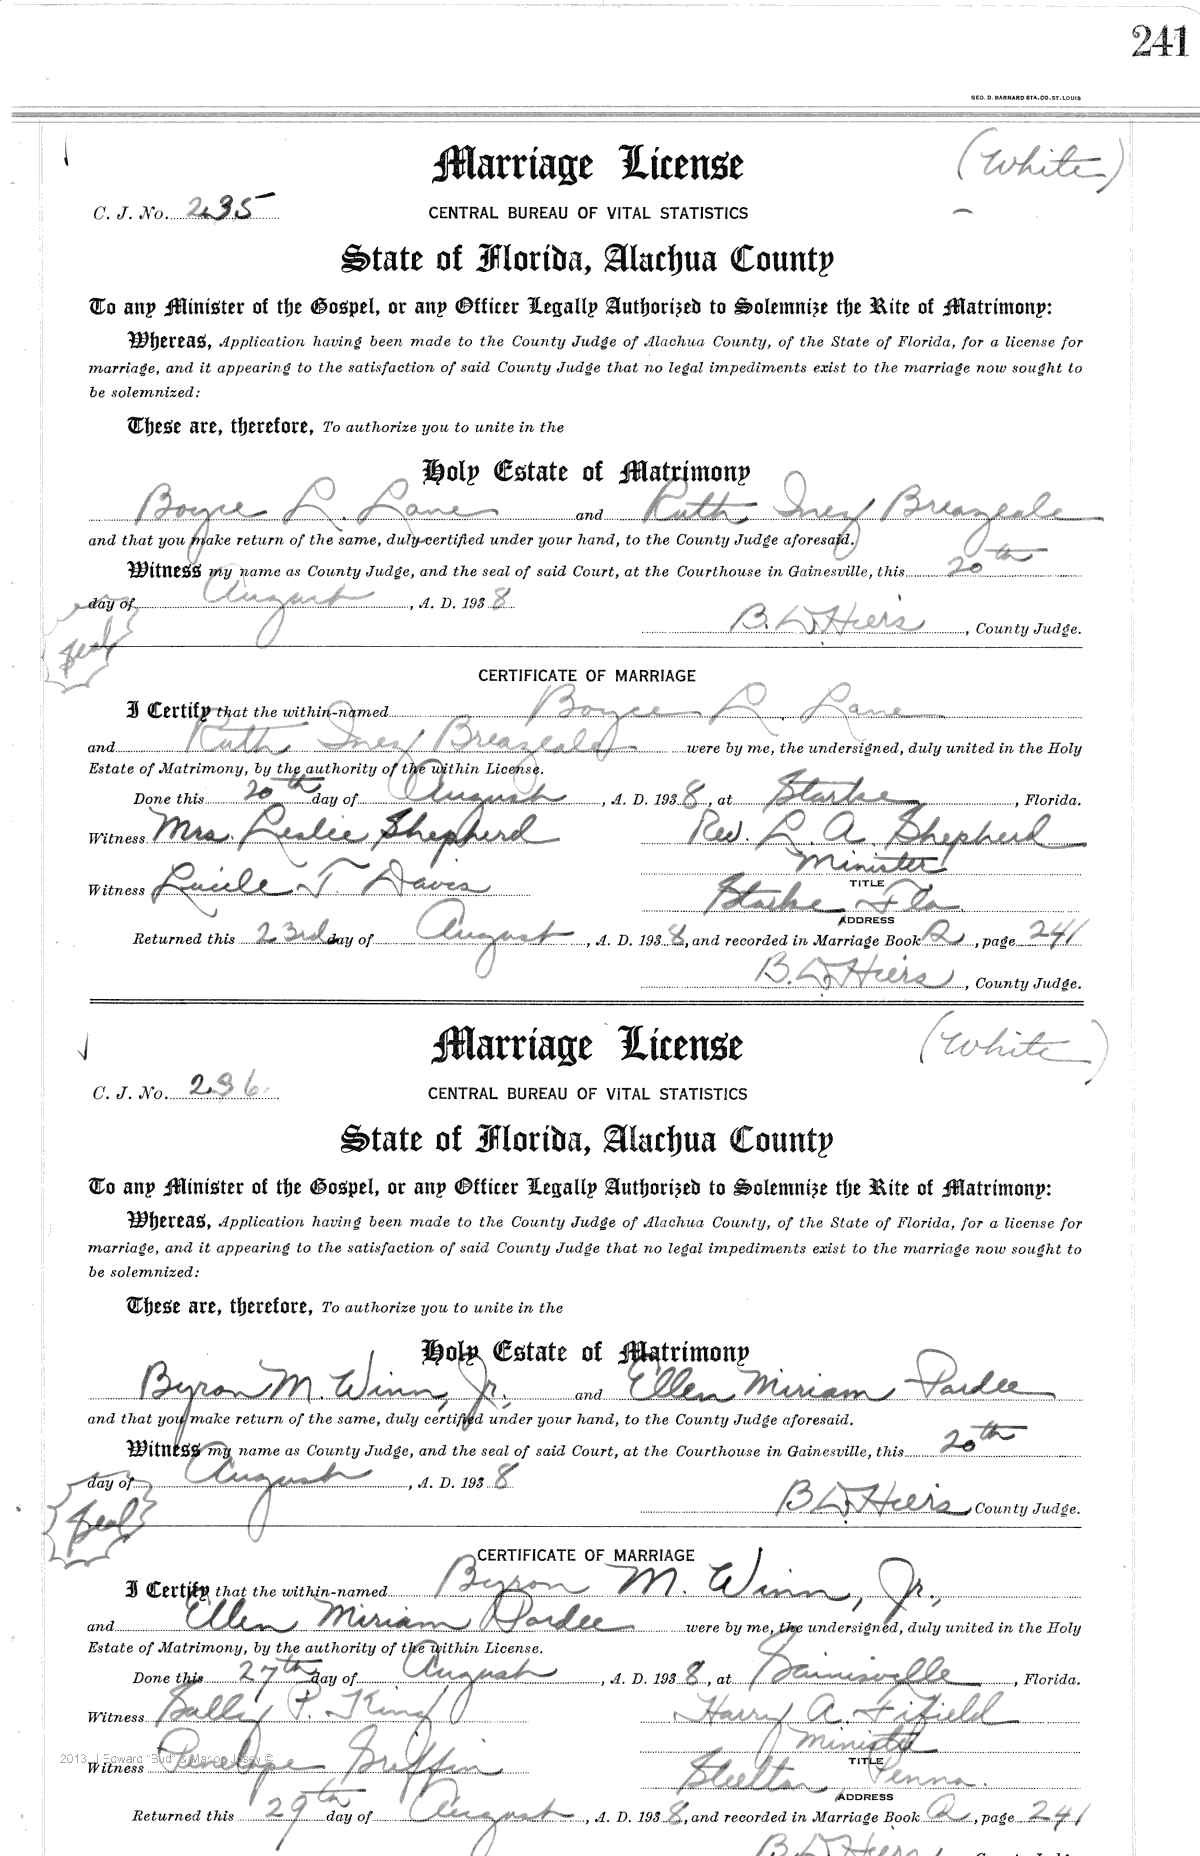 241
GEO. D. BARNARD STA. CO. ST. LOUIS
Marriage License
(White)
C. J. No. 235
CENTRAL BUREAU OF VITAL STATISTICS
State of Florida, Alachua County
To any Minister of the Gospel, or any Officer Legally Authorized to Solemnize the Rite of Matrimony:
Whereas, Application having been made to the County Judge of Alachua County, of the State of Florida, for a license for
marriage, and it appearing to the satisfaction of said County Judge that no legal impediments exist to the marriage now sought to
be solemnized:
These are, therefore, To authorize you to unite in the
Holy Estate of Matrimony
Boyce L. Lane and Ruth Inez Breazeale
and that you make return of the same, duly certified under your hand, to the County Judge aforesaid.
Witness my name as County Judge, and the seal of said Court, at the Courthouse in Gainesville, this 20th
day of August, A. D. 1938
B. D. Hiers, County Judge.
Seal
CERTIFICATE OF MARRIAGE
I Certify that the within-named Boyce L. Lane
and Ruth Inez Breazeale were by me, the undersigned, duly united in the Holy
Estate of Matrimony, by the authority of the within License.
Done this 20th day of August, A. D. 1938, at Starke, Florida.
Witness Mrs. Leslie Shepherd Rev. L. A. Shepherd
Minister
TITLE
Witness Lucile T. Davis Starke, Fla.
ADDRESS
Returned this 23rd day of August, A. D. 1938, and recorded in Marriage Book R, page 241
B. D. Hiers, County Judge.
Marriage License
(White)
C. J. No. 236
CENTRAL BUREAU OF VITAL STATISTICS
State of Florida, Alachua County
To any Minister of the Gospel, or any Officer Legally Authorized to Solemnize the Rite of Matrimony:
Whereas, Application having been made to the County Judge of Alachua County, of the State of Florida, for a license for
marriage, and it appearing to the satisfaction of said County Judge that no legal impediments exist to the marriage now sought to
be solemnized:
These are, therefore, To authorize you to unite in the
Holy Estate of Matrimony
Byron M. Winn, Jr., and Ellen Miriam Pardee
and that you make return of the same, duly certified under your hand, to the County Judge aforesaid.
Witness my name as County Judge, and the seal of said Court, at the Courthouse in Gainesville, this 20th
day of August, A. D. 1938
B D. Hiers County Judge.
Seal
CERTIFICATE OF MARRIAGE
I Certify that the within-named Byron M. Winn, Jr.,
and Ellen Miriam Pardee were by me, the undersigned, duly united in the Holy
Estate of Matrimony, by the authority of the within License.
Done this 27th day of August, A. D. 1938, at Gainesville, Florida.
Witness Sally P. King Harry A. Fifield
Minister
2013 J Edward "Bud" & Macon Josey ©
TITLE
Witness Penelope Griffin Steelton, Penna.
ADDRESS
Returned this 29th day of August, A. D. 1938, and recorded in Marriage Book R, page 241
B. D. Hiers, County Judge.